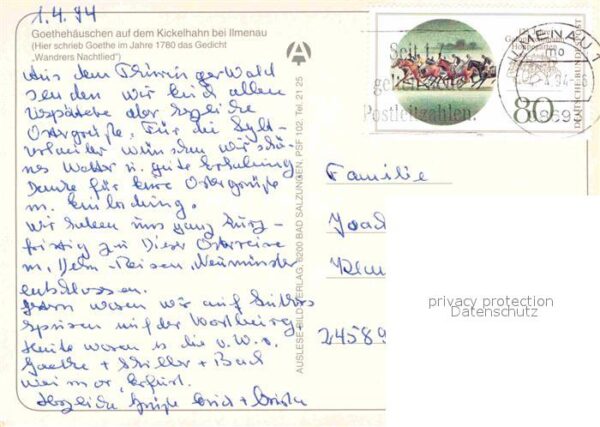 1.4.94
Goethehäuschen auf dem Kickelhahn bei Ilmenau
(Hier schrieb Goethe im Jahre 1780 das Gedicht
„Wandrers Nachtlied")
Aus dem Thüringer Wald
senden wir Euch allen
verspätete aber herzliche
Ostergrüße. Für die Sylt-
urlauber wünschen wir schö-
nes Wetter u. gute Erholung
Danke für Eure Ostergrüße
m. Einladung.
Wir haben uns ganz kurz-
fristig zu dieser Osterreise
m. Reisen, Neumünster
entschlossen.
Gestern waren wir auf Luthers
Spuren auf der Wartburg.
Heute waren es die v. W. v.
Goethe + Schiller + Bach
Weimar, Erfurt.
Herzliche Grüße
AUSLESE-BILD-VERLAG, 6200 BAD SALZUNGEN, PSF 102, Tel. 21 25
Seit
Postleitzahlen.
ILMENAU 1
80
DEUTSCHE BUNDESPOST
Familie
24589
privacy protection
Datenschutz